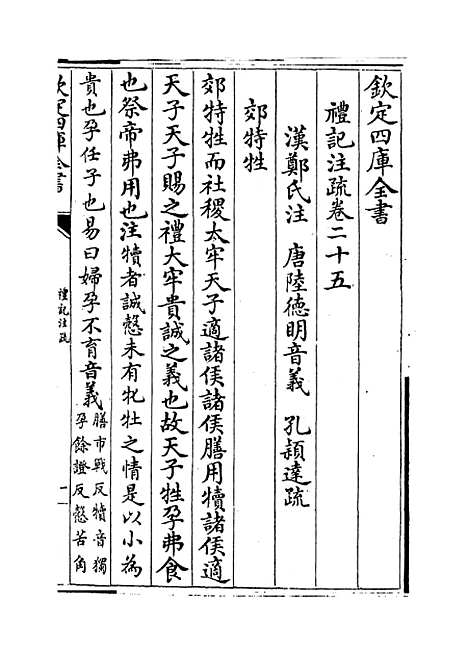 欽定四庫全書
禮記注疏卷二十五
漢鄭氏注 唐陸徳明音義 孔穎達疏
郊特牲
郊特牲而社稷太牢天子適諸侯諸侯膳用犢諸侯適
天子天子賜之禮大牢貴誠之義也故天子牲孕弗食
也祭帝弗用也注犢者誠慤未有牝牡之情是以小為
貴也孕任子也易曰婦孕不育音義膳市戰反犢音獨
孕餘證反慤苦角
欽定四庫全書
禮記注疏
一